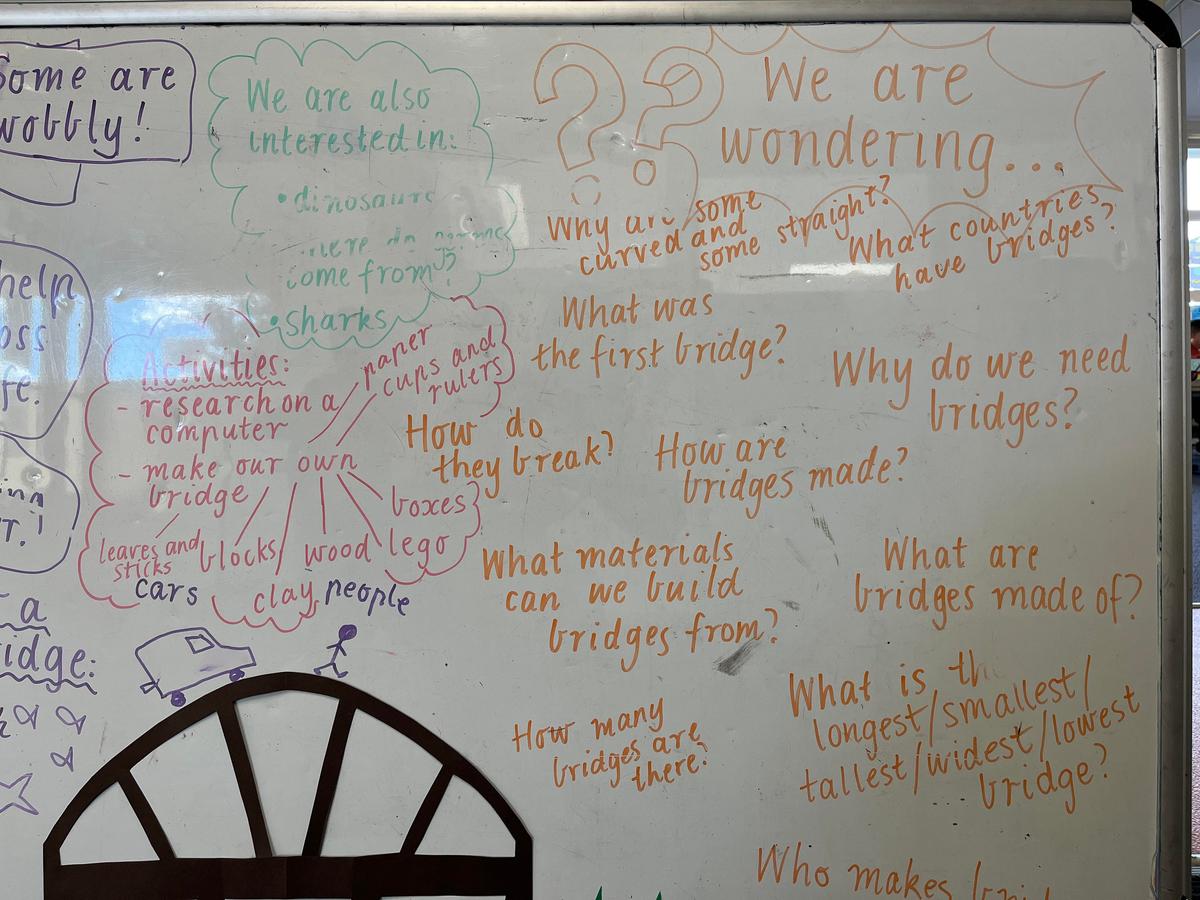 Some are
wobbly!
help
oss
fe.
T.!
a
idge:
We are also
interested in:
• dinosaurs
come from?
• Sharks
Activities:
- research on a
computer
- make our own
bridge
paper
cups and
rulers
leaves and
sticks
blocks
clay
wood
lego
boxes
cars
people
We are
wondering...
Why are some
curved and
some straight?
What countries
have bridges?
What was
the first bridge?
Why do we need
bridges?
How do
they break?
How are
bridges made?
What materials
can we build
bridges from?
What are
bridges made of?
How many
bridges are
there?
What is th
longest/smallest/
tallest/widest/lowest
bridge?
Who makes